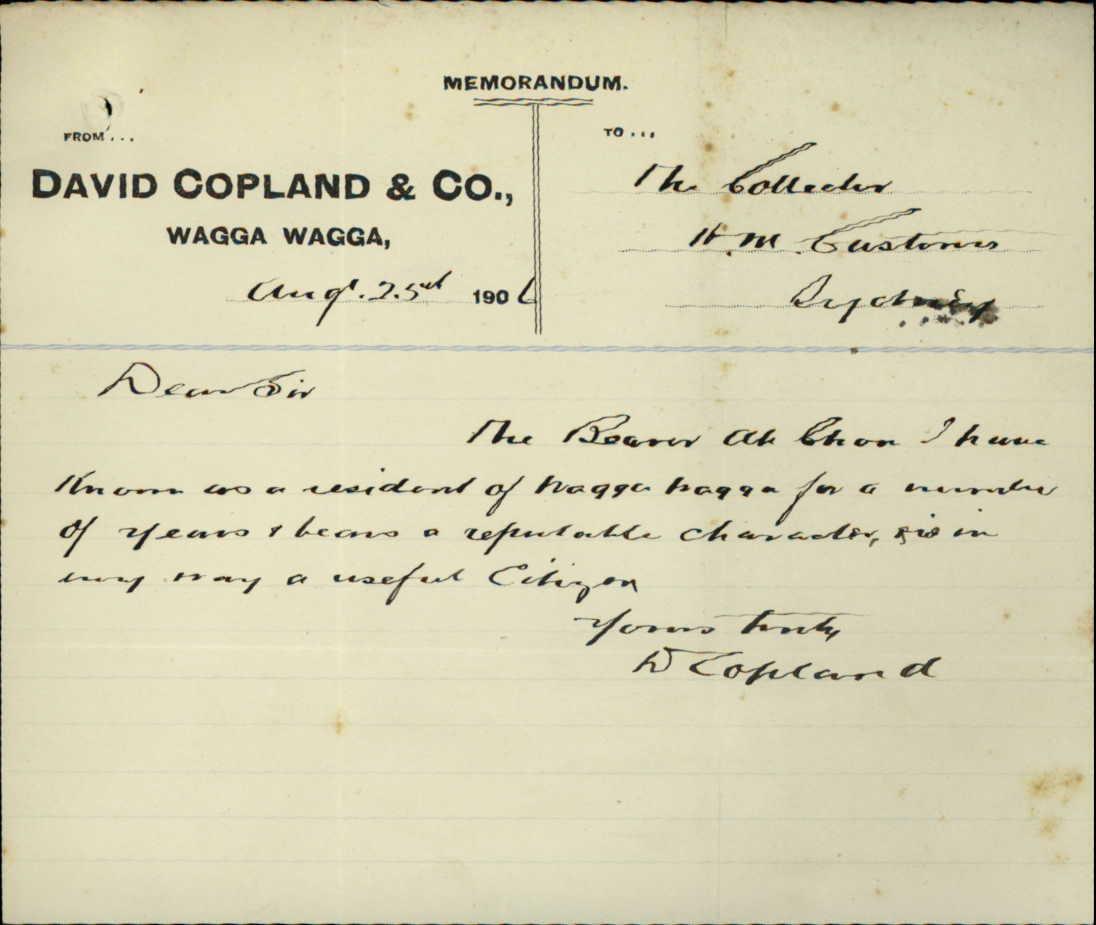 MEMORANDUM.
FROM...
TO...
DAVID COPLAND & CO.,
WAGGA WAGGA,
Augt. 25th 1906
The Collector
H.M. Customs
Sydney
Dear Sir
The Bearer Ah Chon I have
Known as a resident of Wagga Wagga for a number
of years & bears a reputable character, & is in
my way a useful Citizen
Yours truly
D Copland